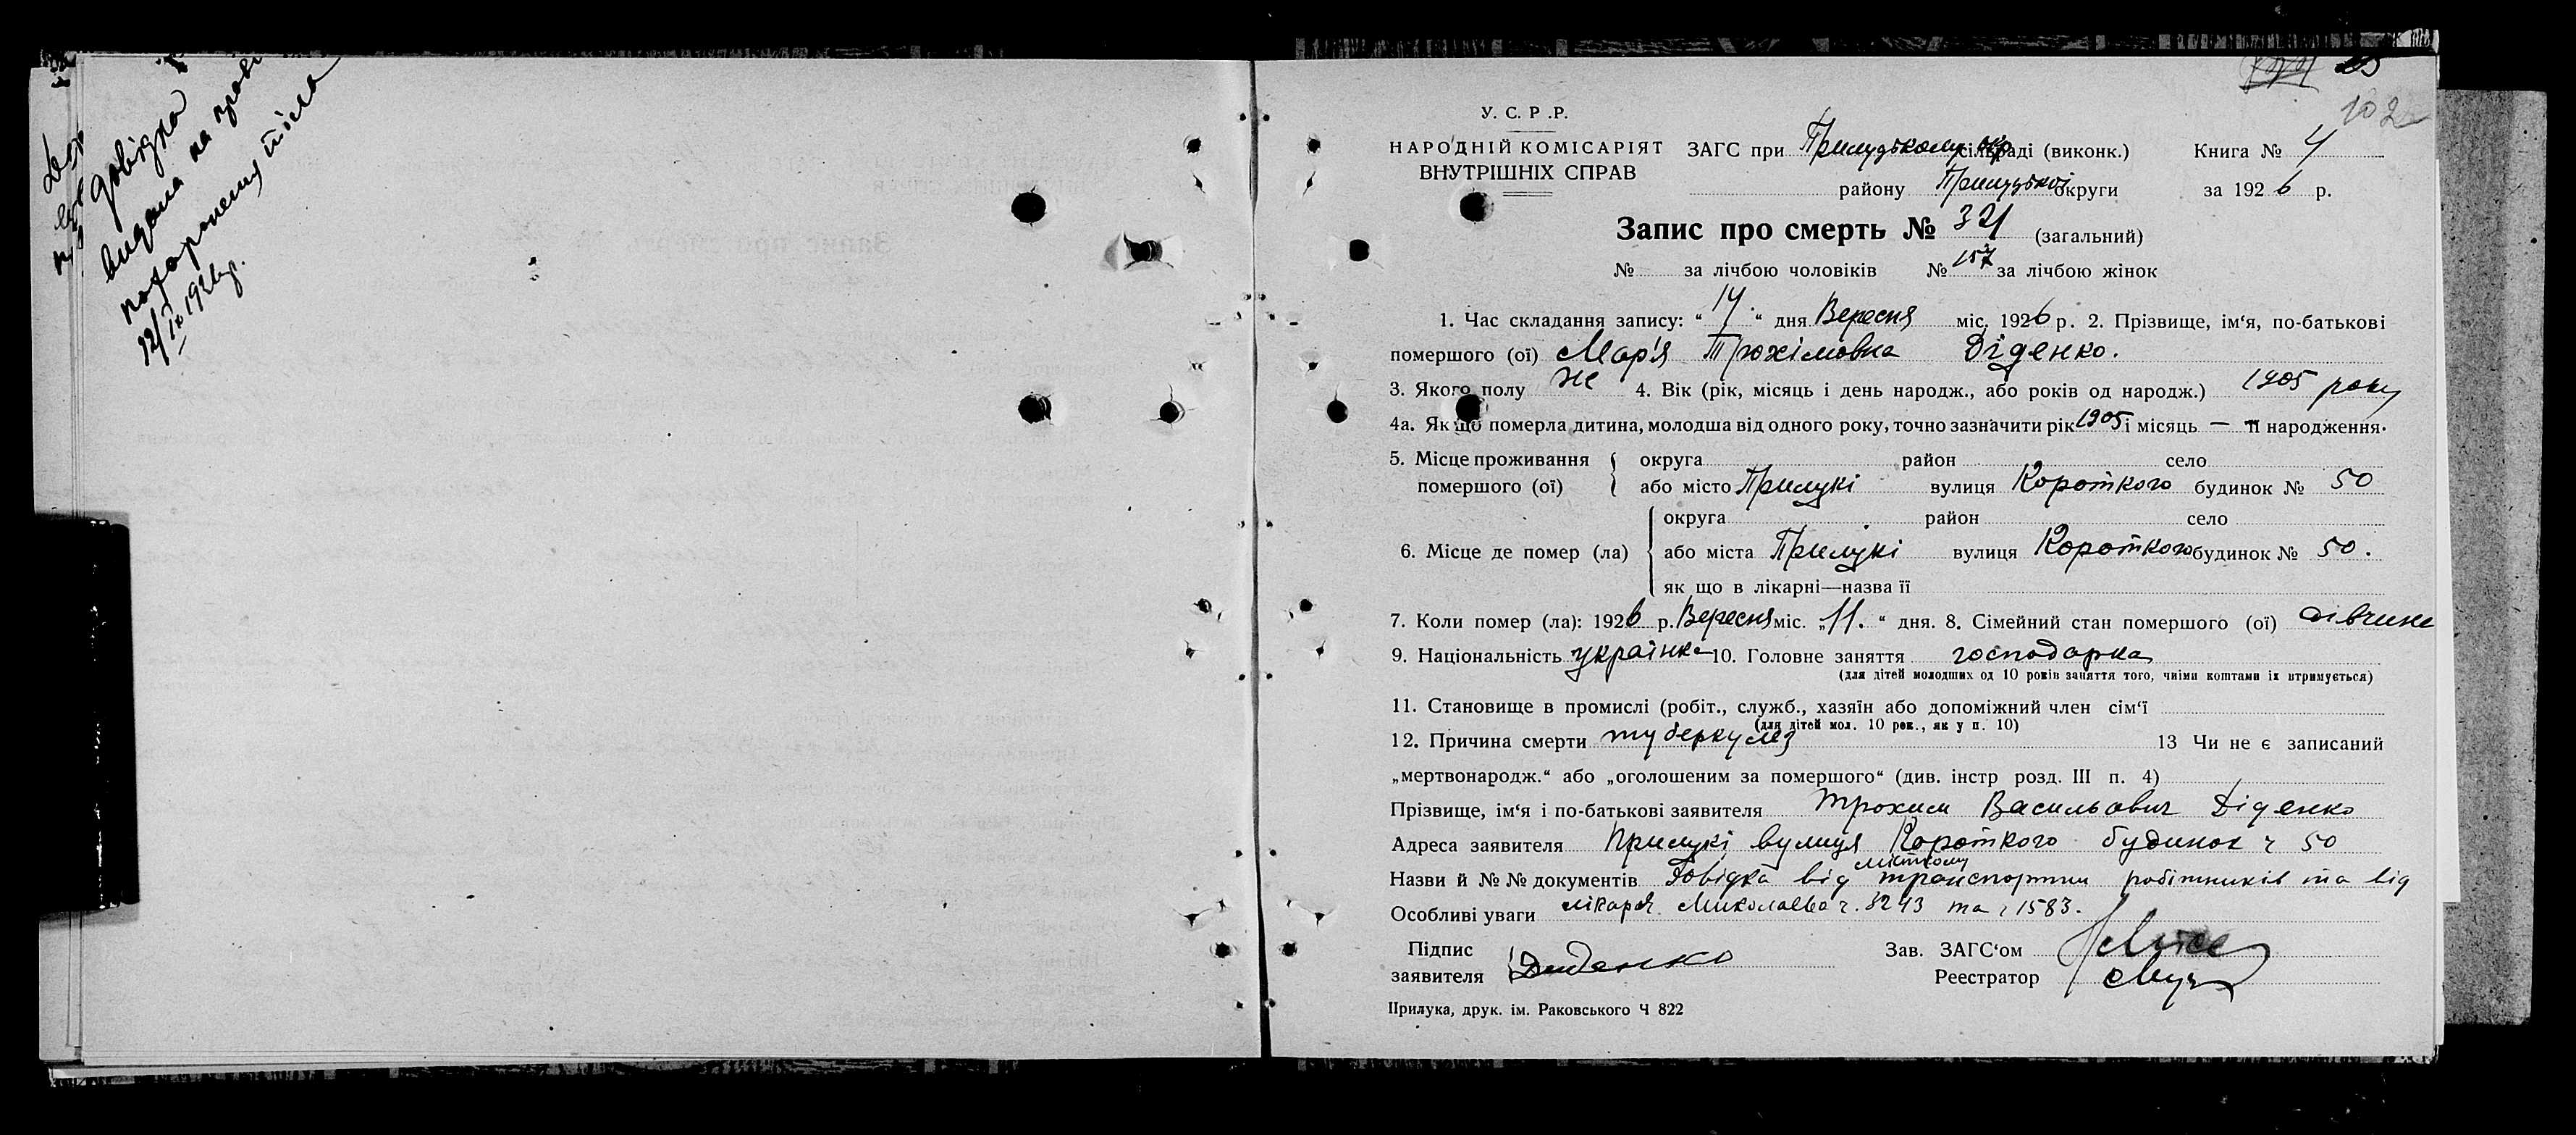 довідка
видана на право
похоронену тіла
12/IX 1926 р.
102
У. С. Р. Р.
НАРОДНІЙ КОМІСАРІЯТ
ВНУТРІШНІХ СПРАВ
ЗАГС при Прилуцькому окр сільраді (виконк.) Книга № 4
району Прилуцької округи за 1926 р.
Запис про смерть № 321 (загальний)
№ за лічбою чоловіків № 157 за лічбою жінок
1. Час складання запису: “14“ дня Вересня міс. 1926 р. 2. Прізвище, ім‘я, по-батькові
помершого (ої) Мар'я Трохімовна Діденко.
3. Якого полу же 4. Вік (рік, місяць і день народж., або років од народж.) 1905 року
4а. Як що померла дитина, молодша від одного року, точно зазначити рік 1905 і місяць — її народження.
5. Місце проживання округа район село
помершого (ої) або місто Прилукі вулиця Короткого будинок № 50
округа район село
6. Місце де помер (ла) або міста Прилукі вулиця Короткого будинок № 50.
як що в лікарні—назва її
7. Коли помер (ла): 1926 р. Вересня міс. „11.“ дня. 8. Сімейний стан помершого (ої) дівчина
9. Національність українка 10. Головне заняття господарка
(для дітей молодших од 10 років заняття того, чиїми коштами їх втримується)
11. Становище в промислі (робіт., служб., хазяїн або допоміжний член сім‘ї
(для дітей мол. 10 рок., як у п. 10)
12. Причина смерти туберкулез 13 Чи не є записаний
„мертвонародж.“ або „оголошеним за помершого“ (див. інстр розд. III п. 4)
Прізвище, ім‘я і по-батькові заявителя Трохим Васильович Діденко
Адреса заявителя Прилукі вулиця Короткого будинок ч 50
місткому
Назви й №№ документів Довідка від транспортни робітників та від
Особливі уваги лікаря Миколаєва ч. 8243 та ч 1583.
Підпис
заявителя Диденко
Зав. ЗАГС‘ом
Реестратор
Прилука, друк. ім. Раковського Ч 822